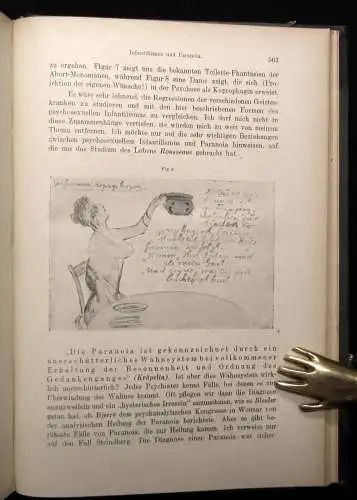 Infantilismus und Paranoia. 561
zu ergehen. Figur 7 zeigt uns die bekannten Toilette-Phantasien der
Abort-Monomanen, während Figur 8 eine Dame zeigt, die sich (Pro-
jektion der eigenen Wünsche!) in der Psychose als Koprophagin erweist.
Es wäre sehr lohnend, die Regressionen der verschiedenen Geistes-
kranken zu studieren und mit den hier beschriebenen Formen des
psychosexuellen Infantilismus zu vergleichen. Ich darf mich nicht in
diese Zusammenhänge vertiefen, sie würden mich zu weit von meinem
Thema entfernen. Ich möchte nur auf die sehr wichtigen Beziehungen
zwischen psychosexuellem Infantilismus und Paranoia hinweisen, auf
die uns das Studium des Lebens Rousseaus gebracht hat.
Fig. 8.
„Die Paranoia ist gekennzeichnet durch ein
unerschütterliches Wahnsystem bei vollkommener
Erhaltung der Besonnenheit und Ordnung des
Gedankenganges“ (Kräpelin). Ist aber dies Wahnsystem wirk-
lich unerschütterlich? Jeder Psychiater kennt Fälle, bei denen es zur
Überwindung des Wahnes kommt. Oft pflegen wir dann die Diagnose
umzuwandeln und ein „hysterisches Irresein“ anzunehmen, wie es Bleuler
getan hat, als Bjerre dem psychoanalytischen Kongresse in Weimar von
der analytischen Heilung der Paranoia berichtete. Aber es gibt be-
rühmte Fälle von Paranoia, die zur Heilung kamen. Ich verweise nur
auf den Fall Strindberg. Die Diagnose einer Paranoia war sicher